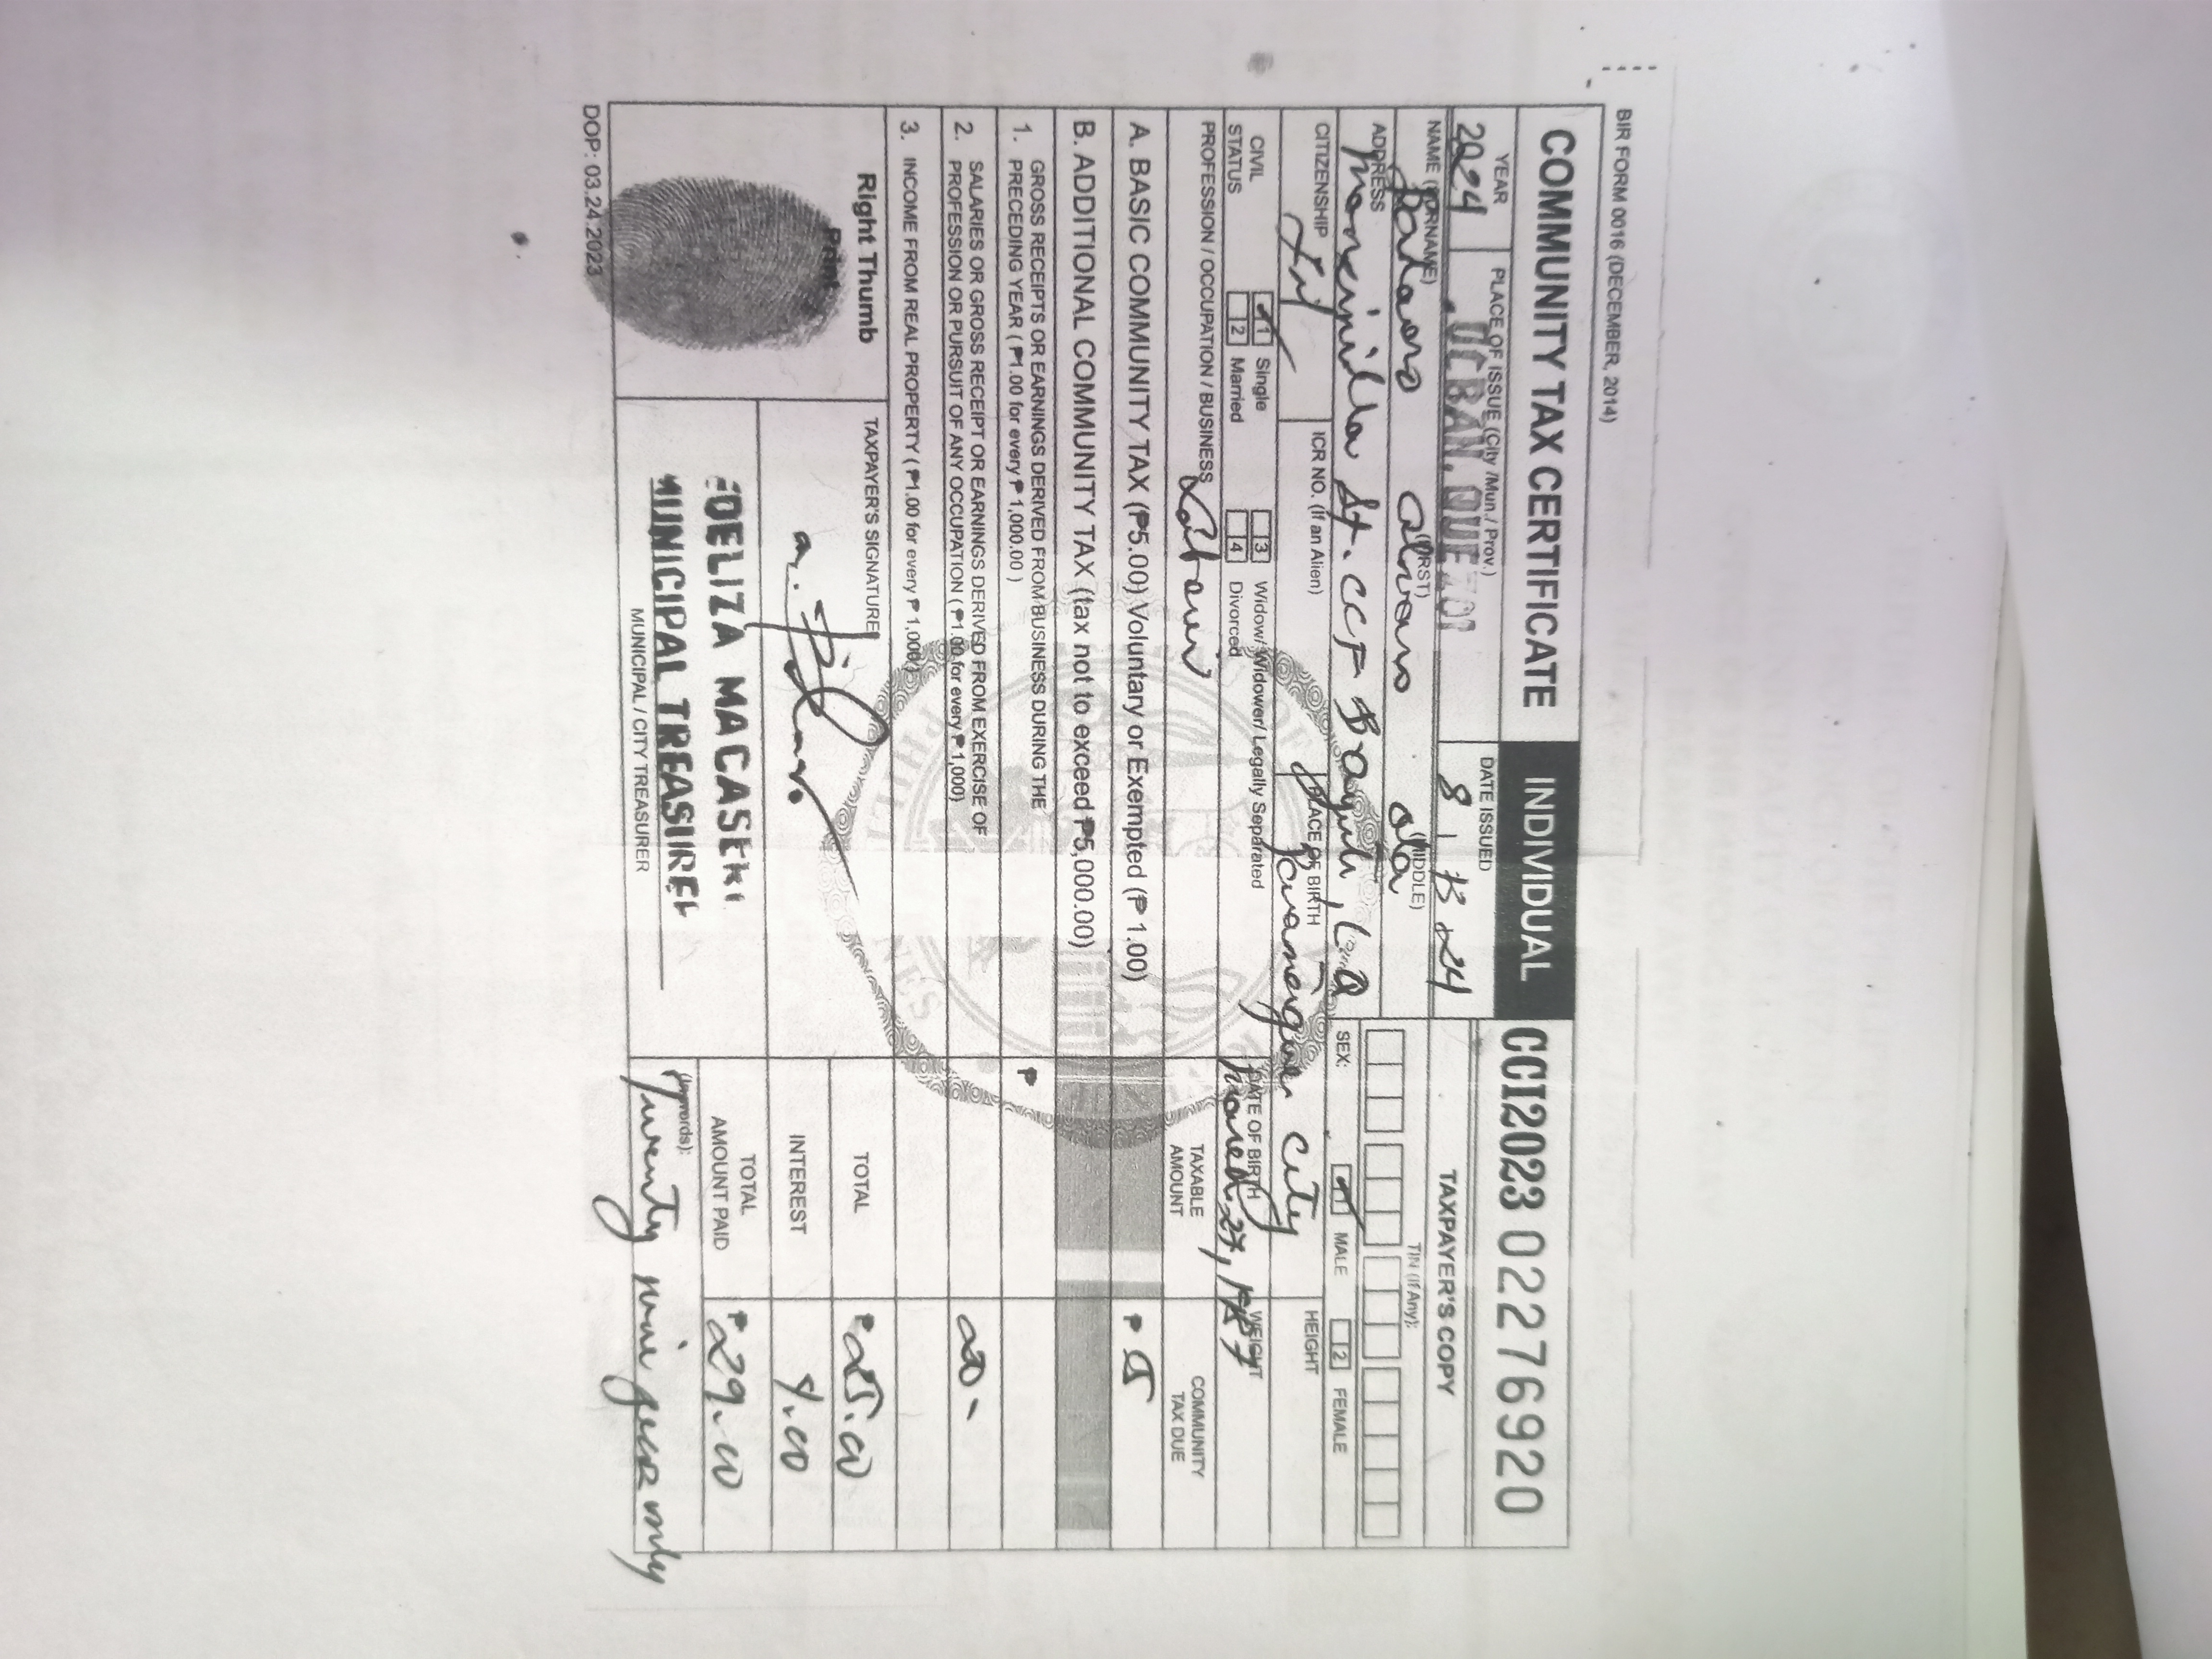 BIR FORM 0016 (DECEMBER, 2014)
COMMUNITY TAX CERTIFICATE INDIVIDUAL CCI2023 02276920
YEAR PLACE OF ISSUE (City /Mun./ Prov.) DATE ISSUED TAXPAYER'S COPY
2024 8 24
NAME (SURNAME) (FIRST) (MIDDLE) TIN (If Any):
Alvaro
ADDRESS SEX: 1 MALE 2 FEMALE
St. CCF
CITIZENSHIP ICR NO. (If an Alien) PLACE OF BIRTH HEIGHT
Fil City
CIVIL STATUS 1 Single 2 Married 3 Widow/ Widower/ Legally Separated 4 Divorced DATE OF BIRTH WEIGHT
PROFESSION / OCCUPATION / BUSINESS TAXABLE AMOUNT COMMUNITY TAX DUE
A. BASIC COMMUNITY TAX (₱5.00) Voluntary or Exempted (₱ 1.00) ₱ 5
B. ADDITIONAL COMMUNITY TAX (tax not to exceed ₱5,000.00)
1. GROSS RECEIPTS OR EARNINGS DERIVED FROM BUSINESS DURING THE ₱
PRECEDING YEAR ( ₱1.00 for every ₱ 1,000.00 )
2. SALARIES OR GROSS RECEIPT OR EARNINGS DERIVED FROM EXERCISE OF 20-
PROFESSION OR PURSUIT OF ANY OCCUPATION ( ₱1.00 for every ₱ 1,000)
3. INCOME FROM REAL PROPERTY ( ₱1.00 for every ₱ 1,000)
Right Thumb TAXPAYER'S SIGNATURE TOTAL ₱25.00
Print INTEREST 4.00
TOTAL AMOUNT PAID ₱29.00
MUNICIPAL / CITY TREASURER (In words):
Twenty nine only
DOP: 03.24.2023